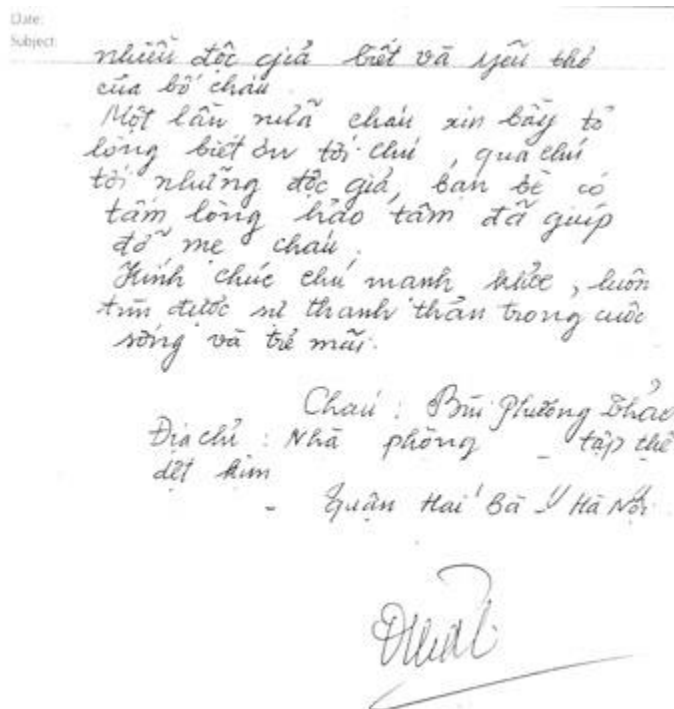 Date:
Subject:
nhiều độc giả biết và yêu thơ
của bố cháu
Một lần nữa cháu xin bày tỏ
lòng biết ơn tới chú, qua chú
tới những độc giả, bạn bè có
tấm lòng hảo tâm đã giúp
đỡ mẹ cháu.
Kính chúc chú mạnh khỏe, luôn
tìm được sự thanh thản trong cuộc
sống và trẻ mãi.
Cháu: Bùi Phương Thảo
Địa chỉ: Nhà phòng - tập thể
dệt kim
- Quận Hai Bà - Hà Nội